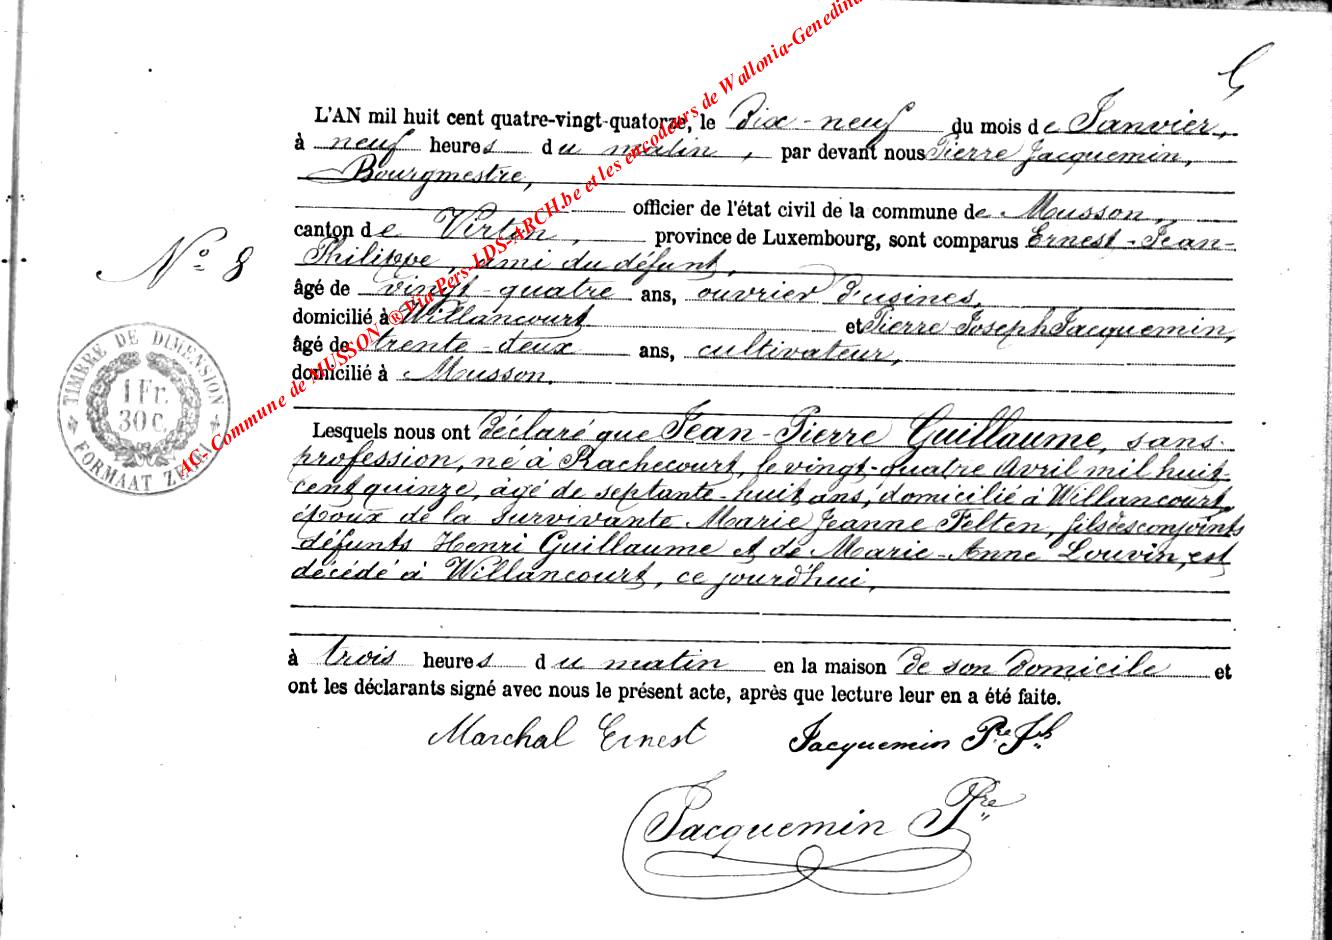 L'AN mil huit cent quatre-vingt-quatorze, le Dix-neuf du mois de Janvier,
à neuf heures du matin, par devant nous Pierre Jacquemin,
Bourgmestre,
officier de l'état civil de la commune de Musson,
canton de Virton, province de Luxembourg, sont comparus Ernest-Jean-
Philippe, ami du défunt,
âgé de vingt-quatre ans, ouvrier d'usines,
domicilié à Willancourt et Pierre Joseph Jacquemin,
âgé de trente-deux ans, cultivateur,
domicilié à Musson.
Lesquels nous ont déclaré que Jean-Pierre Guillaume, sans
profession, né à Rachecourt, le vingt-quatre Avril mil huit
cent quinze, âgé de septante-huit ans, domicilié à Willancourt,
époux de la survivante Marie Jeanne Felten, fils des conjoints
défunts Henri Guillaume et de Marie-Anne Louvin, est
décédé à Willancourt, ce jourd'hui,
à trois heures du matin en la maison de son domicile et
ont les déclarants signé avec nous le présent acte, après que lecture leur en a été faite.
Marchal Ernest Jacquemin Pre Jph
Jacquemin Pre
No 8
TIMBRE DE DIMENSION
1 Fr.
30 C.
FORMAAT ZEGEL
AC. Commune de MUSSON ® Via Pers-LDS-ARCH.be et les encodeurs de Wallonia-Genedina